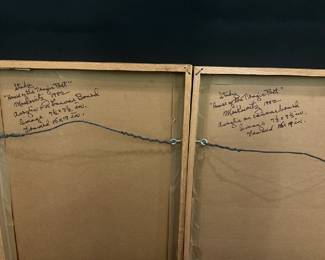 Study
"House of the Magic Belt"
Moskowitz 1982
Acrylic on Canvas Board
Image 7½ x 7½ in.
Framed 15 x 19 in.
Study
"House of the Magic Belt"
Moskowitz, 1982
acrylic on canvas board
Image 7½ x 7½ in.
Framed 15 x 19 in.